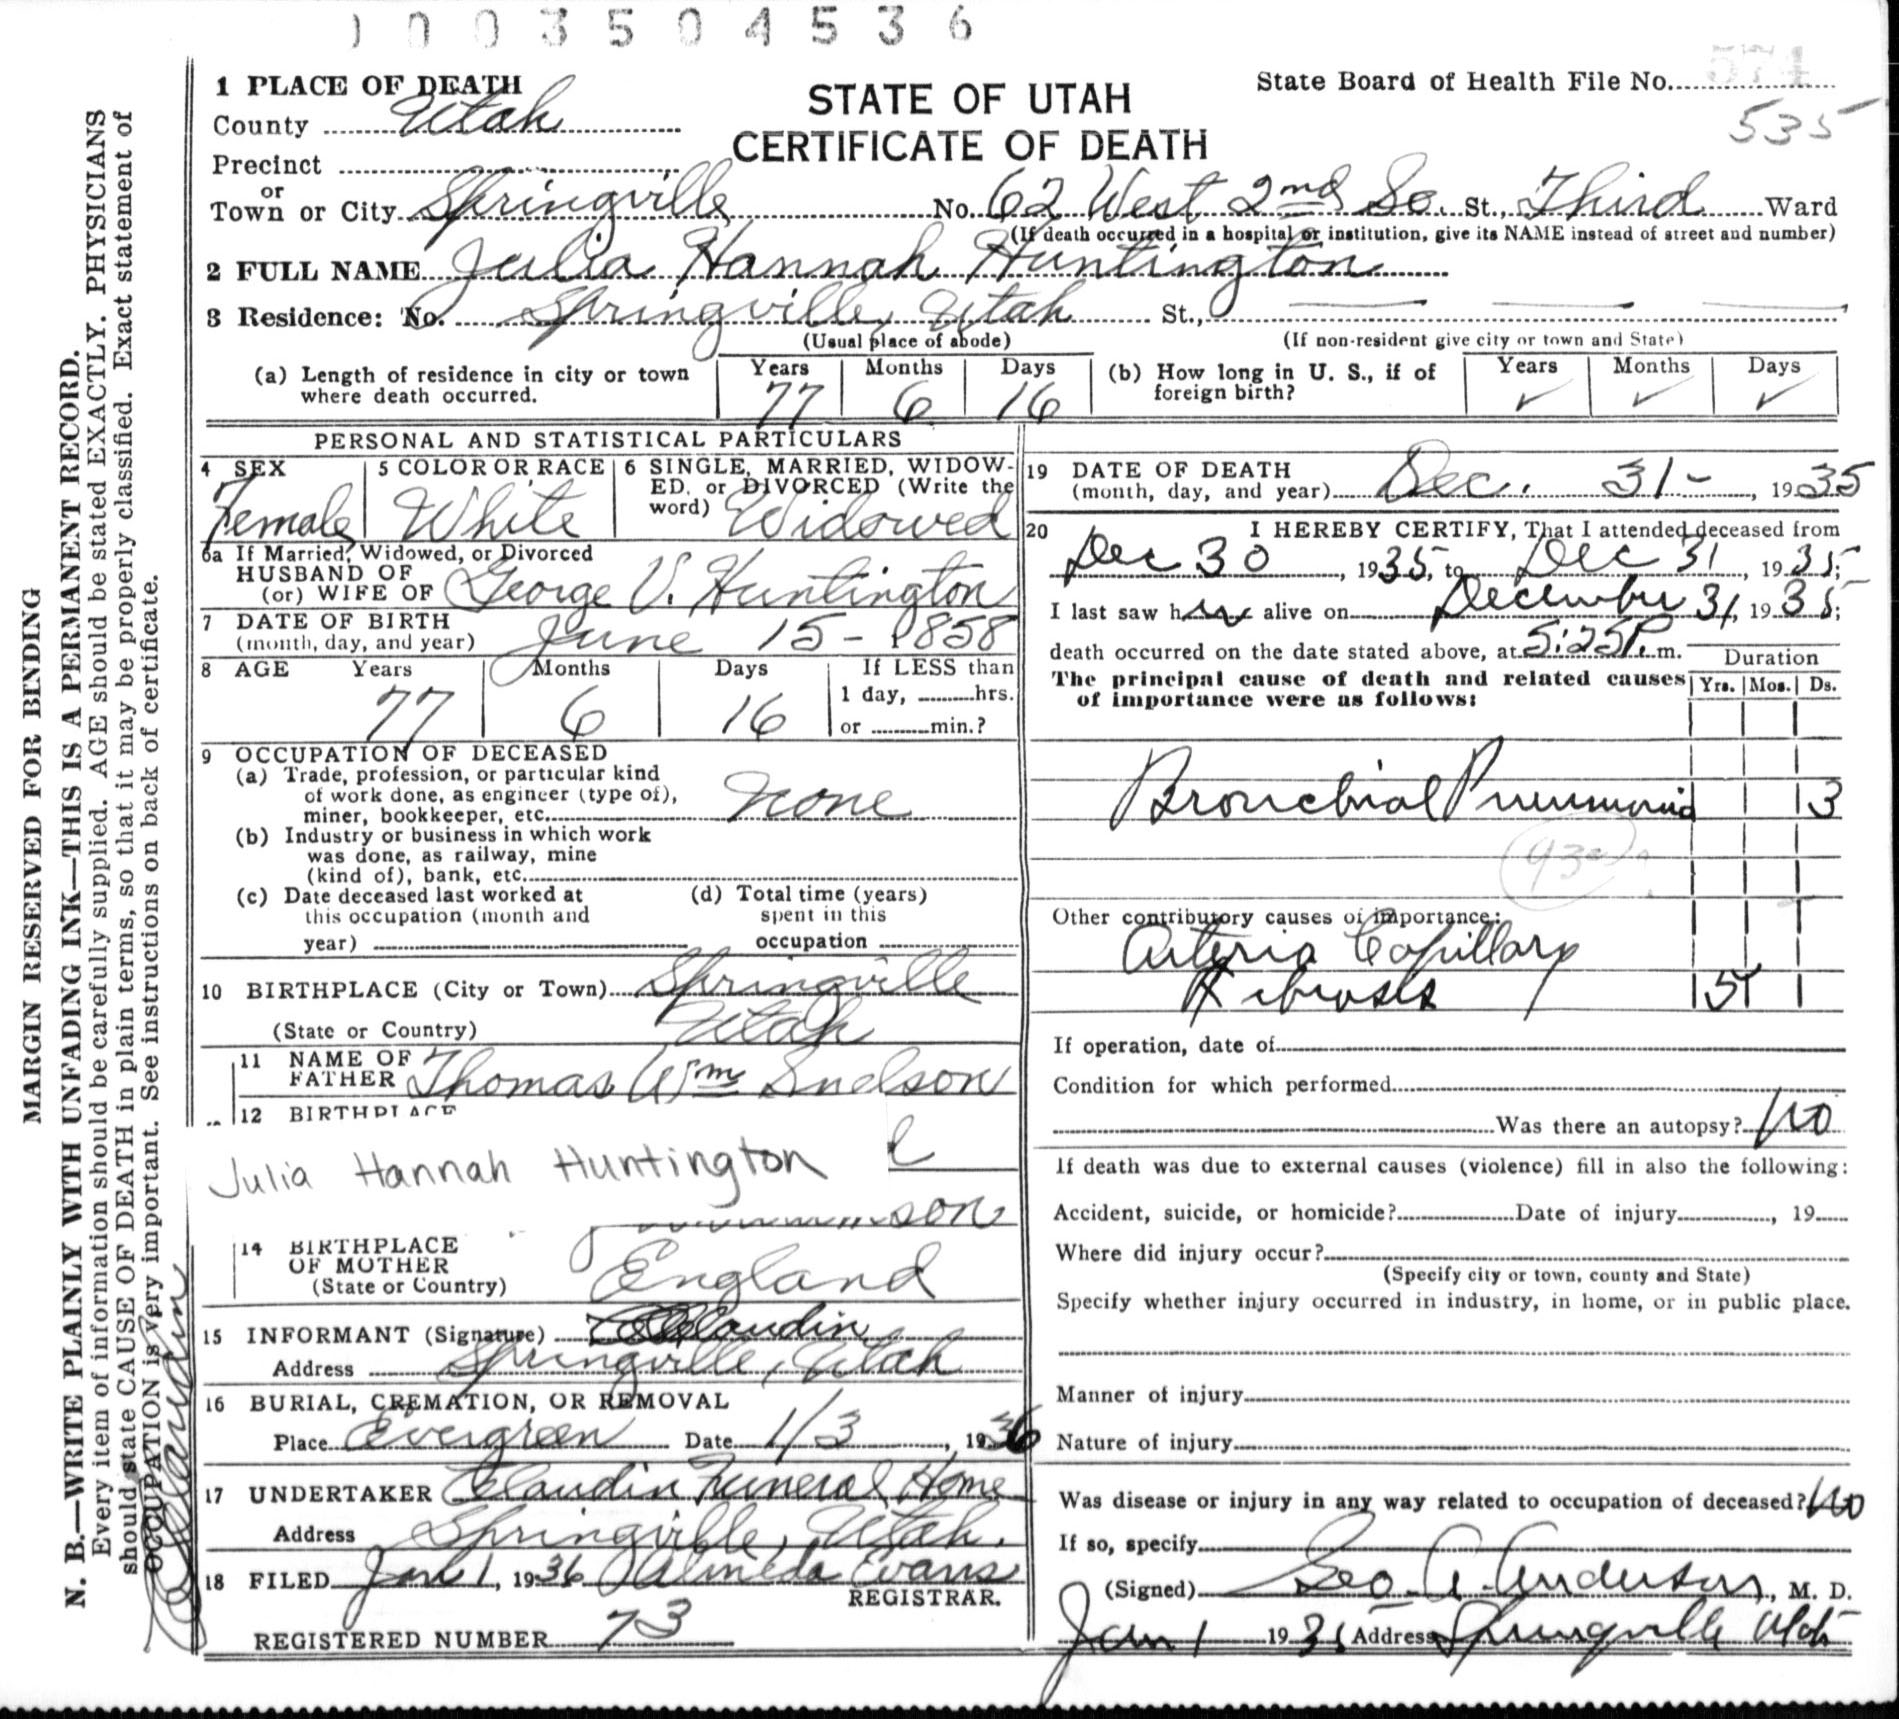 1003504536
1 PLACE OF DEATH
County Utah
Precinct
or
Town or City Springville No. 62 West 2nd So. St., Third Ward
(If death occurred in a hospital or institution, give its NAME instead of street and number)
STATE OF UTAH
CERTIFICATE OF DEATH
State Board of Health File No. 574
535
2 FULL NAME Julia Hannah Huntington
3 Residence: No. Springville, Utah St.,
(Usual place of abode) (If non-resident give city or town and State)
(a) Length of residence in city or town where death occurred. Years 77 Months 6 Days 16
(b) How long in U. S., if of foreign birth? Years ✓ Months ✓ Days ✓
PERSONAL AND STATISTICAL PARTICULARS
4 SEX Female
5 COLOR OR RACE White
6 SINGLE, MARRIED, WIDOW-
ED, or DIVORCED (Write the
word) Widowed
6a If Married, Widowed, or Divorced
HUSBAND OF
(or) WIFE OF George V. Huntington
7 DATE OF BIRTH
(month, day, and year) June 15 - 1858
8 AGE Years 77 Months 6 Days 16 If LESS than
1 day, hrs.
or min.?
9 OCCUPATION OF DECEASED
(a) Trade, profession, or particular kind
of work done, as engineer (type of),
miner, bookkeeper, etc. None
(b) Industry or business in which work
was done, as railway, mine
(kind of), bank, etc.
(c) Date deceased last worked at
this occupation (month and
year)
(d) Total time (years)
spent in this
occupation
10 BIRTHPLACE (City or Town) Springville
(State or Country) Utah
11 NAME OF
FATHER Thomas Wm Snelson
12 BIRTHPLACE
Julia Hannah Huntington
son
14 BIRTHPLACE
OF MOTHER
(State or Country) England
15 INFORMANT (Signature) Claudin
Address Springville, Utah
16 BURIAL, CREMATION, OR REMOVAL
Place Evergreen Date 1/3, 1936
17 UNDERTAKER Claudin Funeral Home
Address Springville, Utah.
18 FILED Jan 1, 1936 Almeda Evans
REGISTRAR.
REGISTERED NUMBER 73
19 DATE OF DEATH
(month, day, and year) Dec. 31 -, 1935
20 I HEREBY CERTIFY, That I attended deceased from
Dec 30, 1935, to Dec 31, 1935;
I last saw her alive on December 31, 1935;
death occurred on the date stated above, at 5:25 P. m.
The principal cause of death and related causes
of importance were as follows:
Duration
Yrs. Mos. Ds.
Bronchial Pneumonia 3
Other contributory causes of importance:
Arterio Capillary
Fibrosis 5
If operation, date of
Condition for which performed
Was there an autopsy? No
If death was due to external causes (violence) fill in also the following:
Accident, suicide, or homicide? Date of injury, 19
Where did injury occur?
(Specify city or town, county and State)
Specify whether injury occurred in industry, in home, or in public place.
Manner of injury
Nature of injury
Was disease or injury in any way related to occupation of deceased? No
If so, specify
(Signed) Geo. A. Anderson, M. D.
Jan 1 19 Address Springville Utah
MARGIN RESERVED FOR BINDING
N. B.—WRITE PLAINLY WITH UNFADING INK—THIS IS A PERMANENT RECORD.
Every item of information should be carefully supplied. AGE should be stated EXACTLY. PHYSICIANS
should state CAUSE OF DEATH in plain terms, so that it may be properly classified. Exact statement of
OCCUPATION is very important. See instructions on back of certificate.